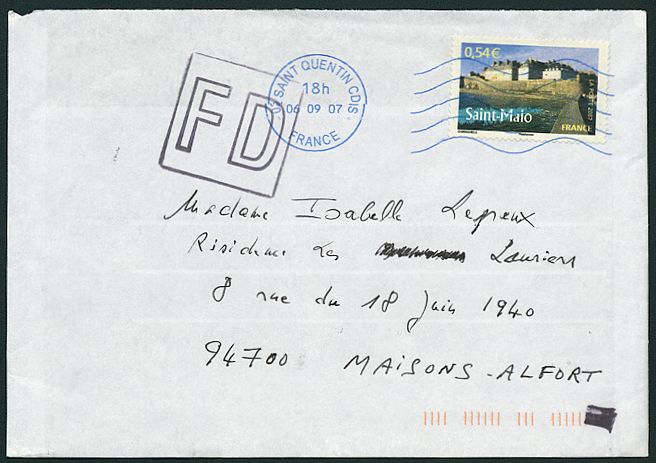 0,54€
LA POSTE 2007
Saint-Malo
FRANCE
02 SAINT QUENTIN CDIS
18h
06 09 07
FRANCE
FD
Madame Isabelle Lepeux
Résidence Les Lauriers
8 rue du 18 Juin 1940
94700 MAISONS-ALFORT